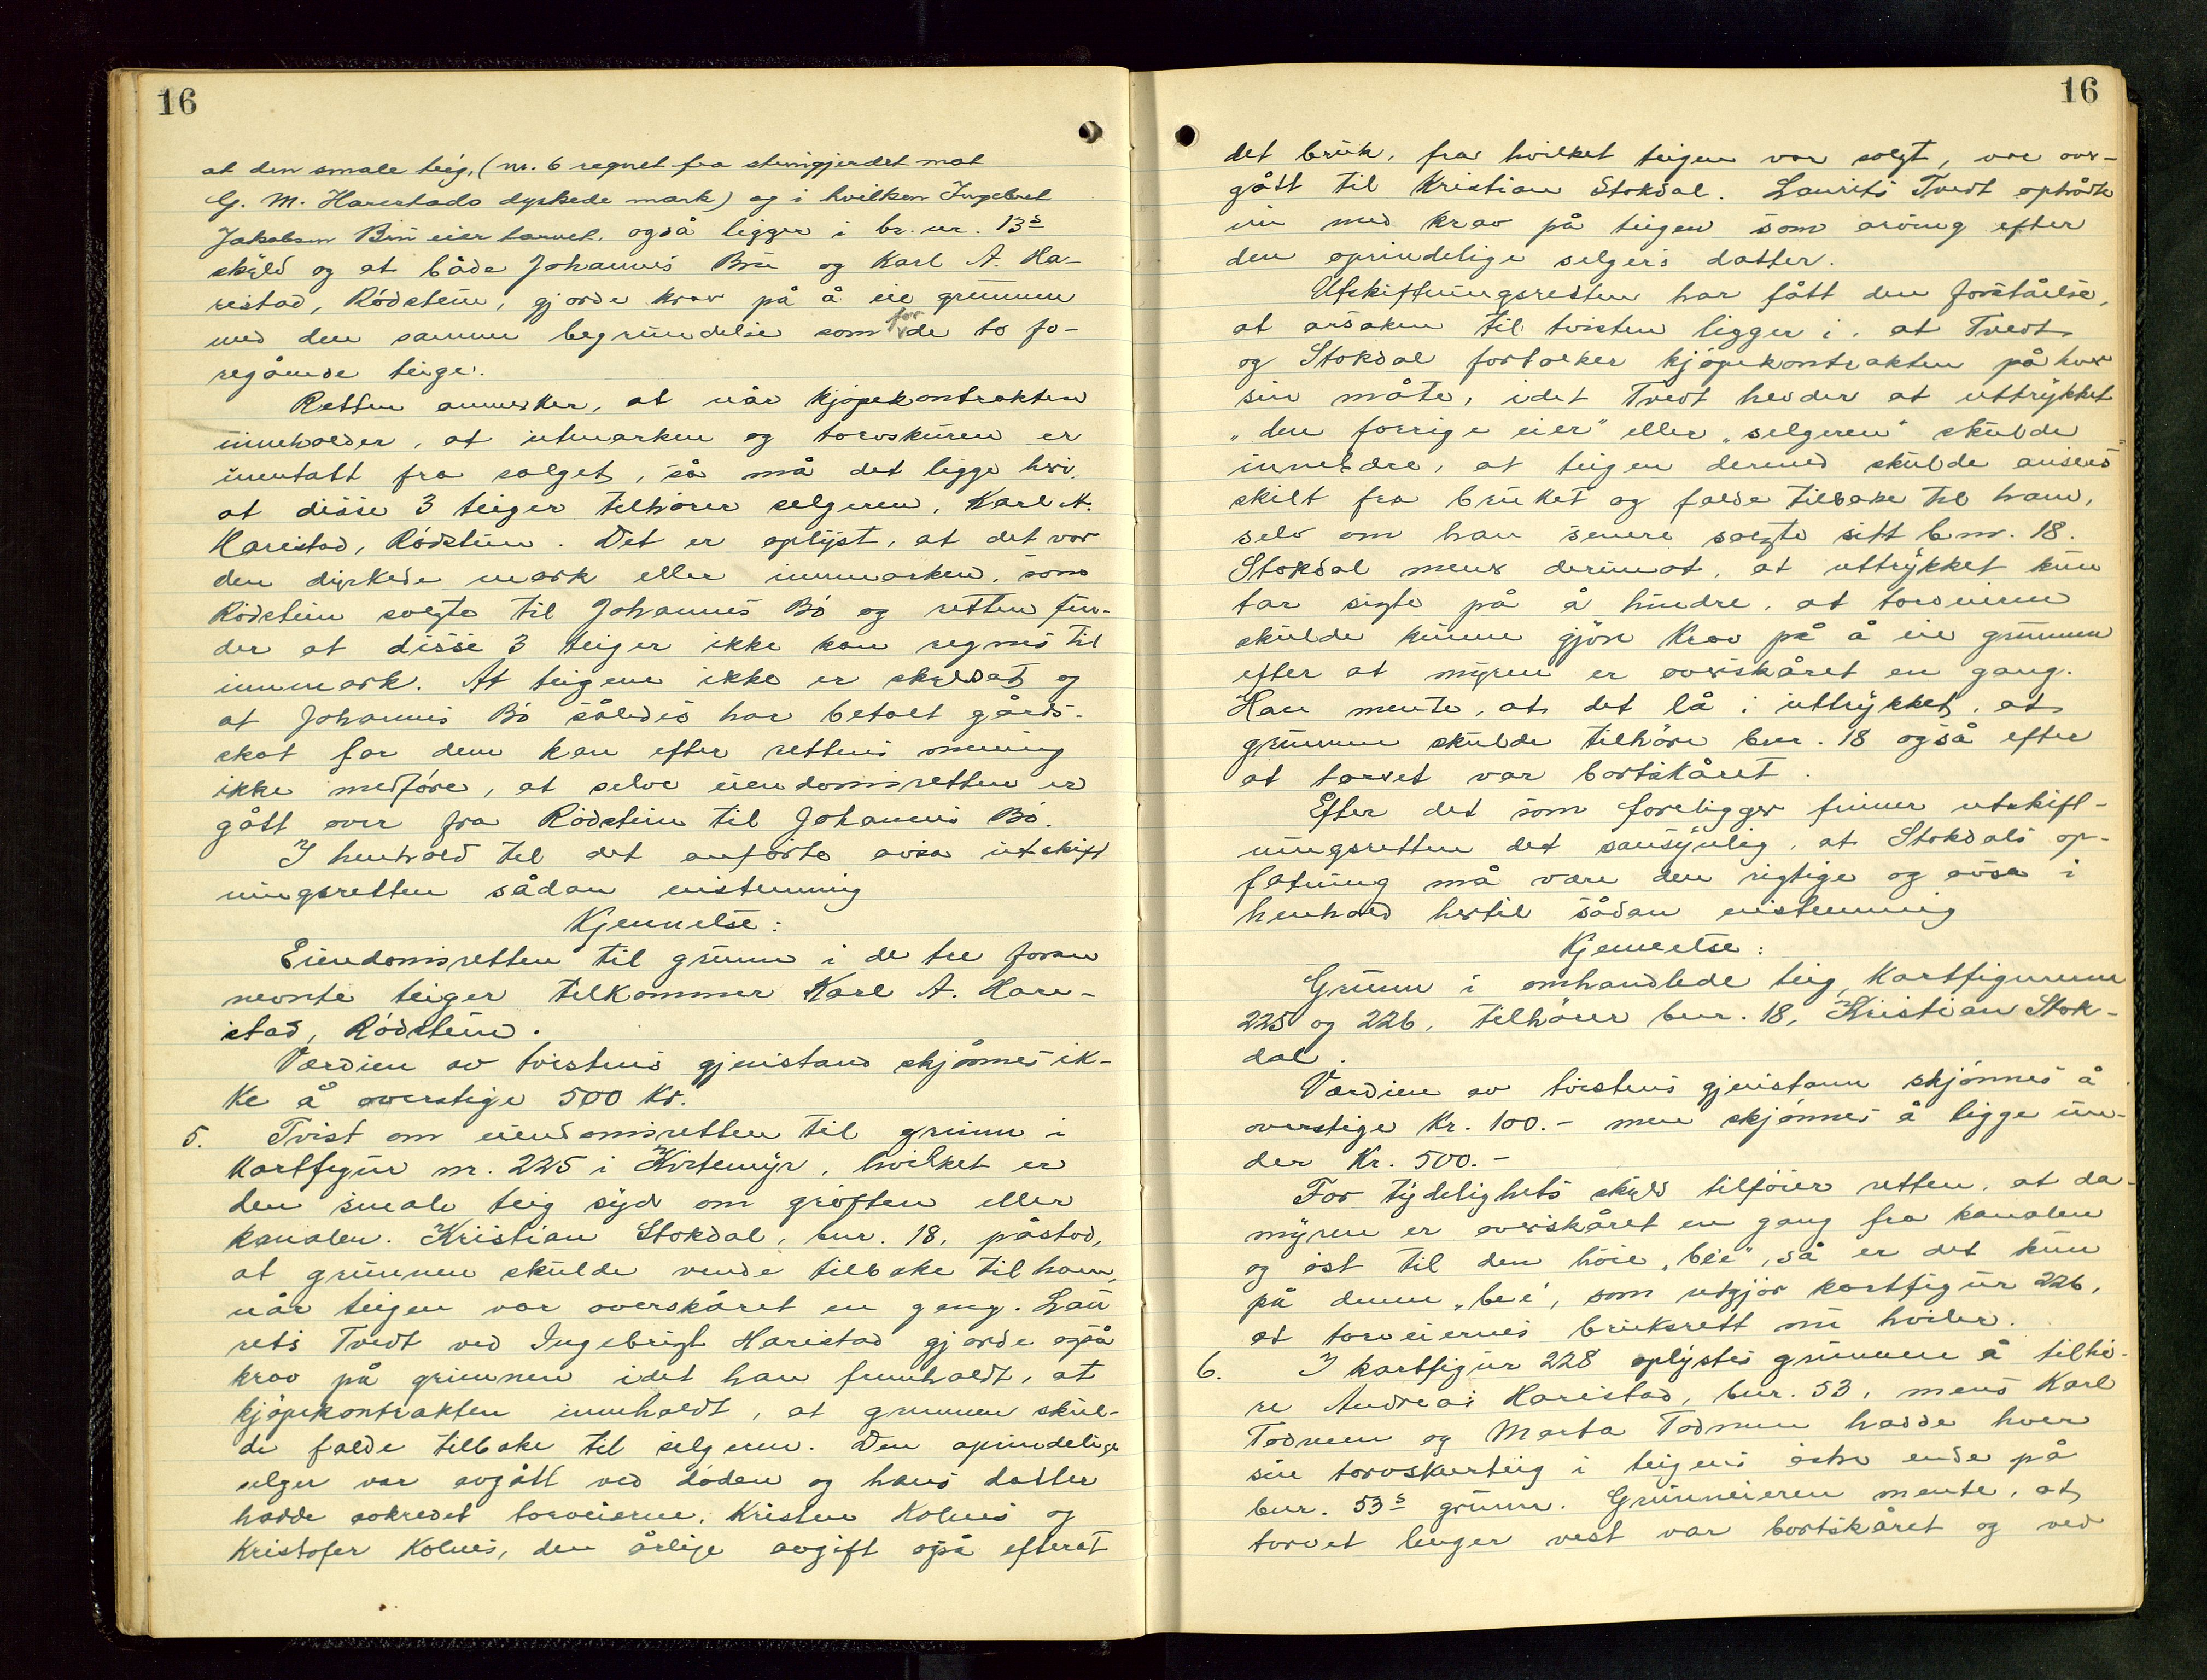 16
at den smale teig, (nr. 6 regnet fra stengjerdet mot
G. M. Harestads dyrkede mark) og i hvilken Ingebret
Jakobsen Bru eier torvet, også ligger i br. nr. 13s
skyld og at både Johannes Bru og Karl A. Ha-
restad, Rödstein, gjorde krav på å eie grunnen
med den samme begrundelse som for de to fo-
regående teiger.
Retten anmerker, at når kjöpekontrakten
inneholder, at utmarken og torvskuren er
unntatt fra salget, så må det ligge heri,
at disse 3 teiger tilhörer selgeren, Karl A.
Harestad, Rödstein. Det er oplyst, at det var
den dyrkede mark eller innmarken, som
Rödstein solgte til Johannes Bö og retten fin-
der at disse 3 teiger ikke kan regnes til
innmark. At teigene ikke er skyldsatt og
at Johannes Bö således har betalt gårds-
skat for dem kan efter rettens mening
ikke medföre, at selve eiendomsretten er
gått over fra Rödstein til Johannes Bö.
I henhold til det anförte avsa utskift
ningsretten sådan enstemmig
Kjennelse:
Eiendomsretten til grunn i de tre foran
nevnte teiger tilkommer Karl A. Hare-
stad, Rödstein.
Verdien av tvistens gjenstand skjönnes ik-
ke å overstige 500 Kr.
5. Tvist om eiendomsretten til grunn i
Kartfigur nr. 225 i Kirtemyr, hvilket er
den smale teig syd om gröften eller
kanalen. Kristian Stokdal, bnr. 18, påstod,
at grunnen skulde vende tilbake til ham,
når teigen var overskåret en gang. Lau
rits Tvedt ved Ingebrigt Harestad gjorde også
krav på grunnen idet han fremholdt, at
kjöpekontrakten inneholdt, at grunnen skul-
de falde tilbake til selgeren. Den oprindelige
selger var avgått ved döden og hans datter
hadde avkredet torveierne, Kristen Kolnes og
Kristofer Kolnes, den årlige avgift også efterat
16
det bruk, fra hvilket teigen var solgt, var over-
gått til Kristian Stokdal. Laurits Tvedt optrådte
nu med krav på teigen som arving efter
den oprindelige selgers datter.
Utskiftningsretten har fått den forståelse,
at årsaken til tvisten ligger i, at Tvedt
og Stokdal fortolker kjöpekontrakten på hver
sin måte, idet Tvedt hevder at uttrykket
"den forrige eier" eller "selgeren" skulde
innebære, at teigen dermed skulde ansees
skilt fra bruket og falde tilbake til ham,
selv om han senere solgte sitt bnr. 18.
Stokdal mener derimot, at uttrykket kun
tar sigte på å hindre, at torveieren
skulde kunne gjöre krav på å eie grunnen
efter at myren er overskåret en gang.
Han mente, at det lå i uttrykket, at
grunnen skulde tilhöre bnr. 18 også efter
at torvet var bortskåret.
Efter det som foreligger finner utskift-
ningsretten det sansynlig, at Stokdals op-
fatning må være den rigtige og avsa i
henhold hertil sådan enstemmig
Kjennelse:
Grunn i omhandlede teig, Kartfigurene
225 og 226, tilhörer bnr. 18, Kristian Stok-
dal.
Verdien av tvistens gjenstann skjönnes å
overstige Kr. 100.- men skjönnes å ligge un-
der Kr. 500.-
For tydelighets skyld tilföier retten, at da
myren er overskåret en gang fra kanalen
og öst til den höie "bée", så er det kun
på denne "bée", som utgjör kartfigur 226,
at torveiernes bruksrett nu hviler.
6. I kartfigur 228 oplystes grunnen å tilhö-
re Andreas Harestad, bnr. 53, mens Karl
Todnem og Marta Todnem hadde hver
sin torvskurteig i teigens östre ende på
bnr. 53s grunn. Grunneieren mente, at
torvet lenger vest var bortskåret og ved